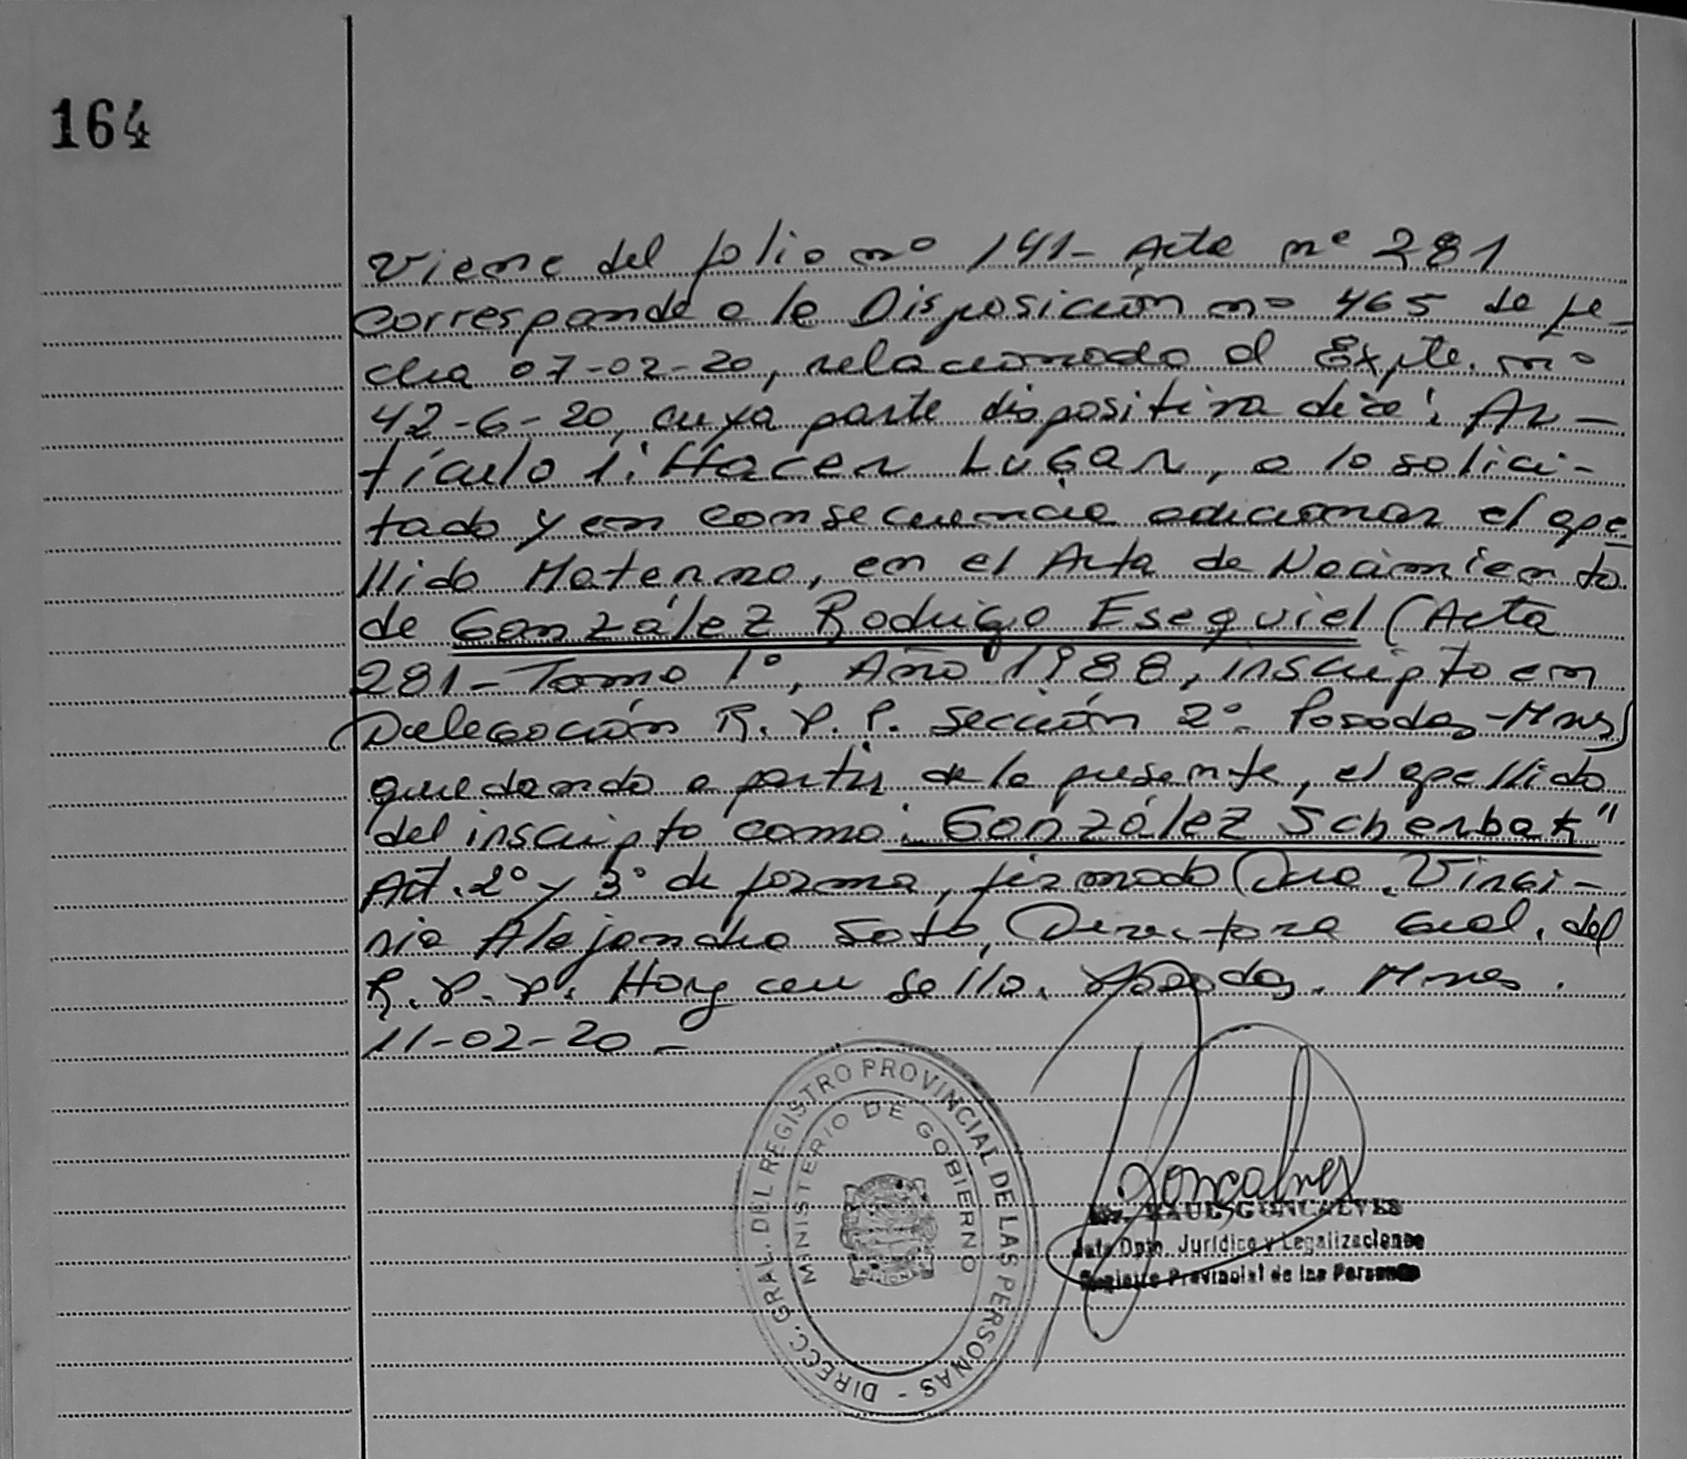 164
Viene del folio nº 141- Acta nº 281
corresponde a la Disposición nº 465 de fe-
cha 07-02-20, relacionado al Expte. nº
42-6-20, cuya parte dispositiva dice: Ar-
tículo 1: Hacer Lugar, a lo solici-
tado y en consecuencia adicionar el ape
llido Materno, en el Acta de Nacimiento
de González Rodrigo Esequiel (Acta
281- Tomo 1º, Año 1988, inscripto en
Delegación R.P.P. Sección 2º Posadas-Mnes)
quedando a partir de la presente, el apellido
del inscripto como: González Scherbak"
Art. 2º y 3º de forma, firmado Dra. Virgi-
nia Alejandra Soto, Directora Gral. del
R.P.P. Hay un sello. Posadas. Mnes.
11-02-20-
DIRECC. GRAL. DEL REGISTRO PROVINCIAL DE LAS PERSONAS -
MINISTERIO DE GOBIERNO
Goncalves
RAUL GONCALVES
Jefe Dpto. Jurídico y Legalizaciones
Registro Provincial de las Personas